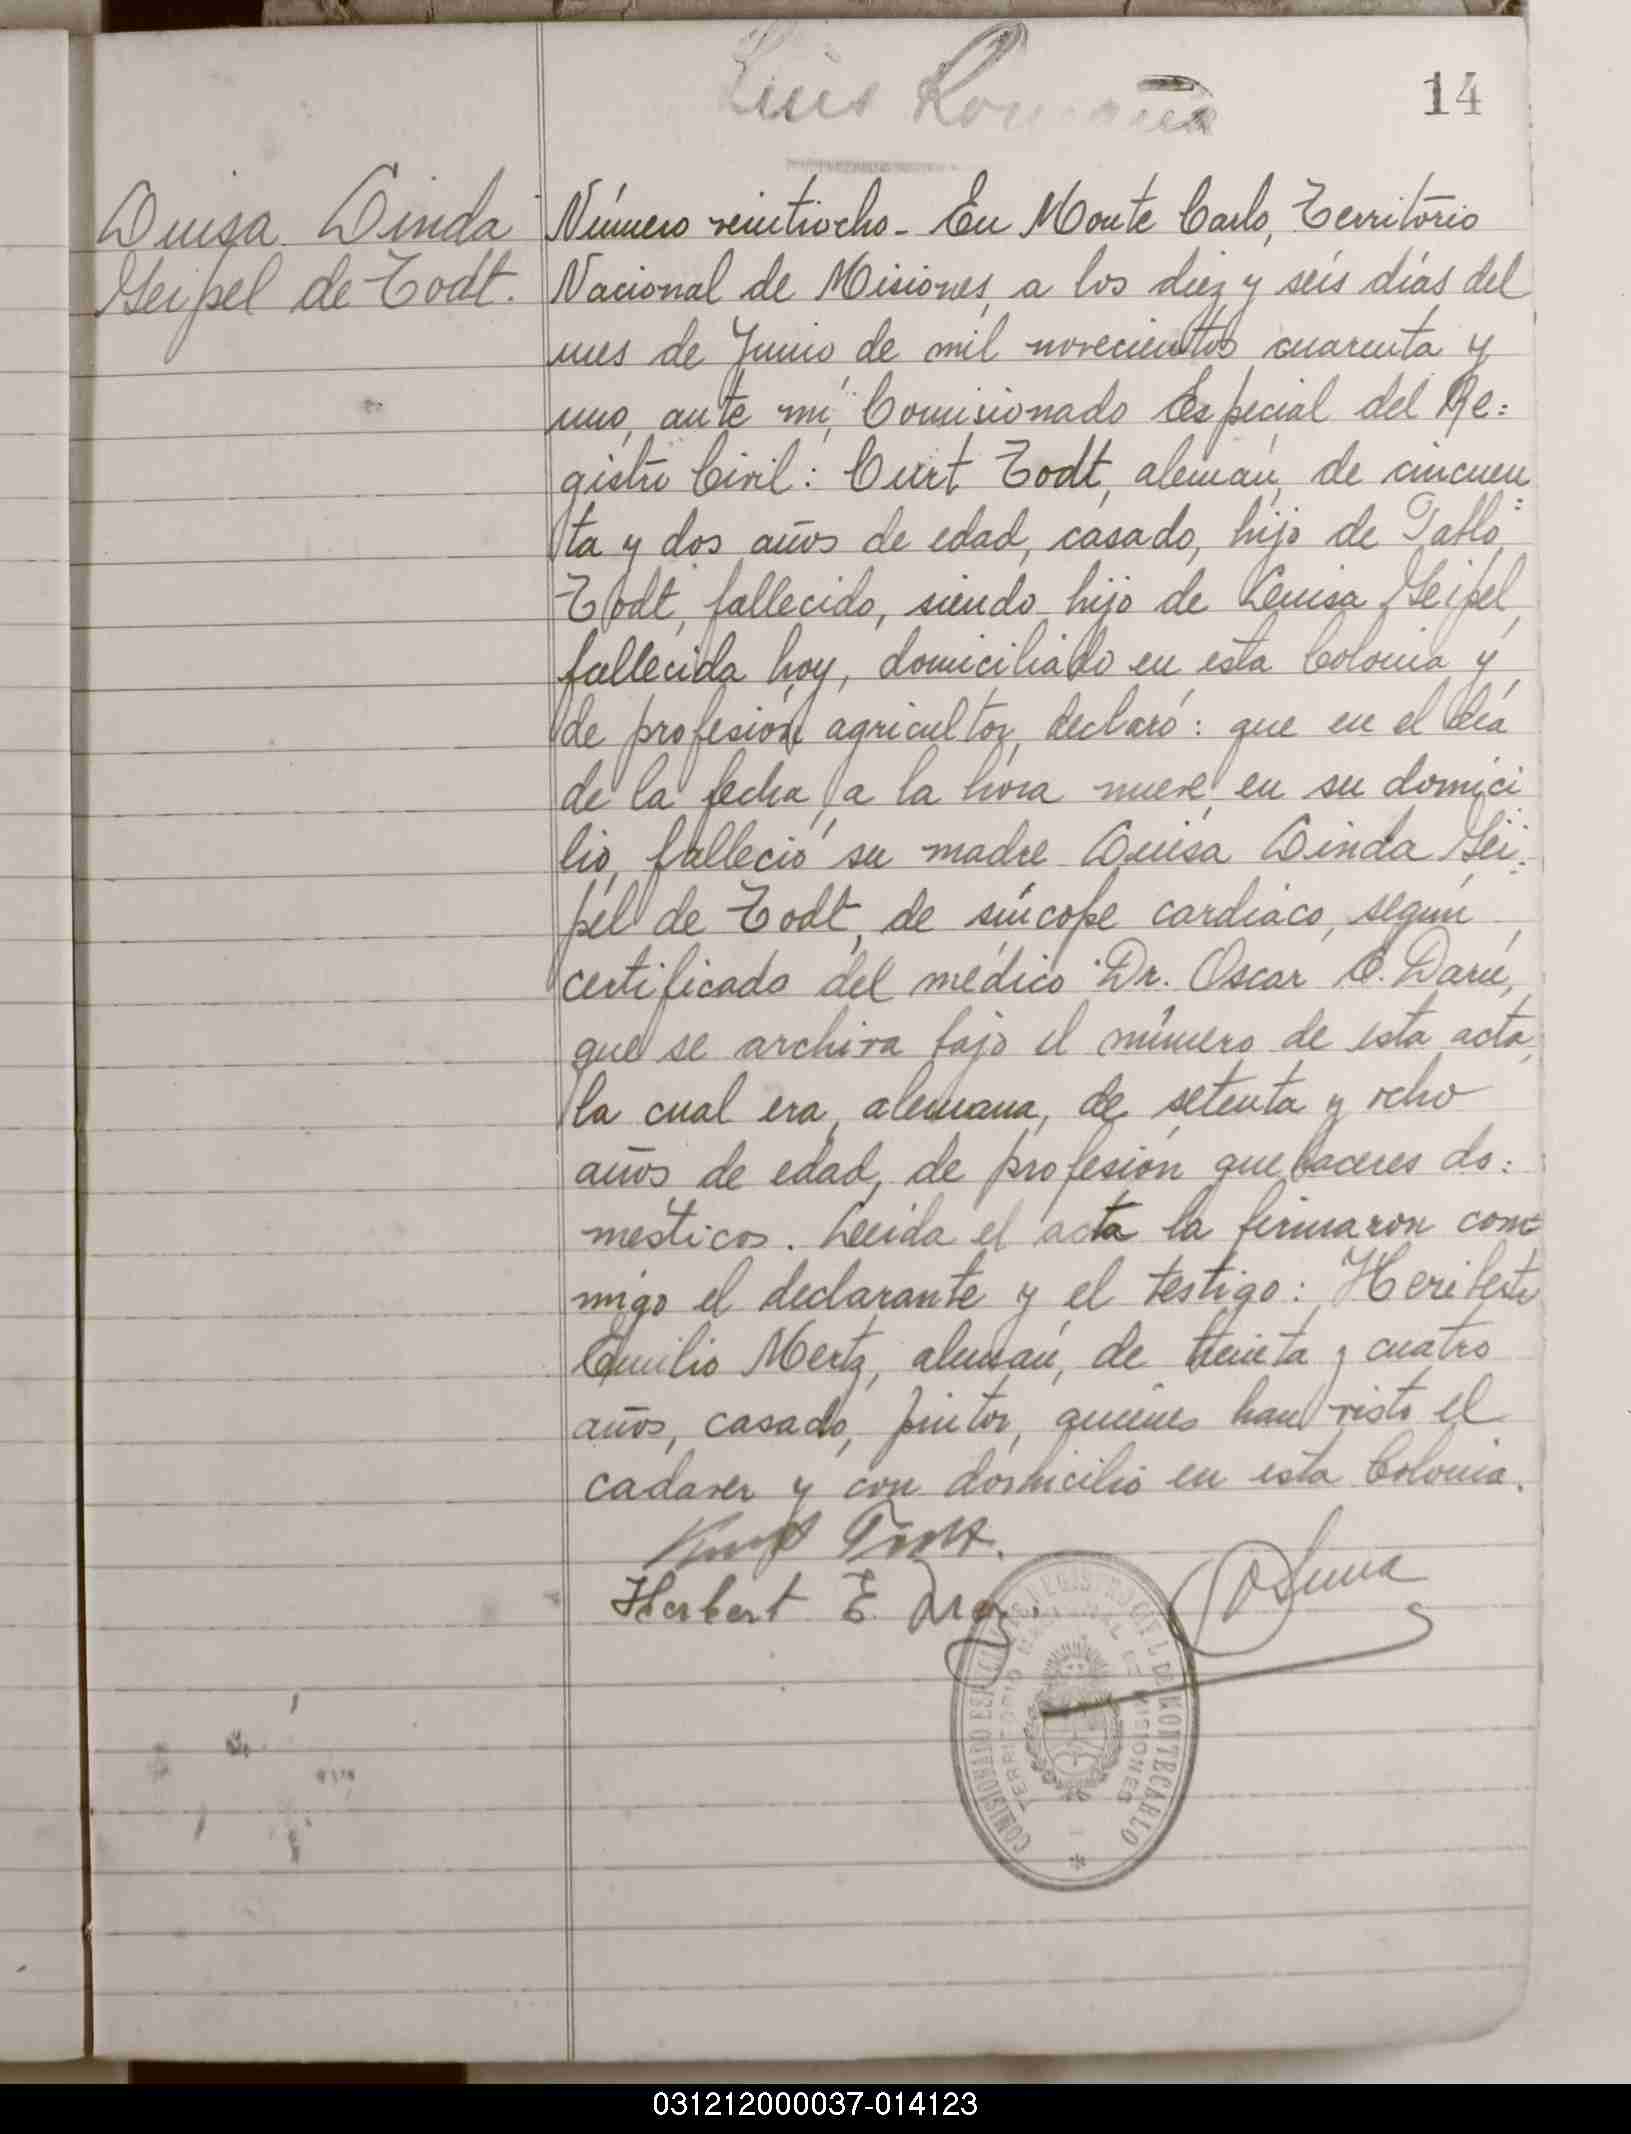 Luis
14
Luisa Linda
Geipel de Todt.
Número veintiocho - En Monte Carlo, Território
Nacional de Misiones, a los diez y seis días del
mes de Junio de mil novecientos cuarenta y
uno, ante mí, Comisionado Especial del Re=
gistro Civil: Curt Todt, alemán, de cincuen
ta y dos años de edad, casado, hijo de Pablo
Todt, fallecido, siendo hijo de Luisa Geipel,
fallecida hoy, domiciliado en esta Colonia y
de profesión agricultor, declaró: que en el día
de la fecha, a la hora nueve, en su domici
lio, falleció su madre Luisa Linda Gei=
pel de Todt, de síncope cardíaco, según
certificado del médico Dr. Oscar C. Darú,
que se archiva bajo el número de esta acta,
la cual era, alemana, de setenta y ocho
años de edad, de profesión quehaceres do=
mésticos. Leida el acta la firmaron con=
migo el declarante y el testigo: Heriberto
Emilio Mertz, alemán, de treinta y cuatro
años, casado, pintor, quienes han visto el
cadaver y con domicilio en esta Colonia.
Kurt Todt.
Herbert E.
COMISIONADO ESPECIAL DEL REGISTRO CIVIL DE MONTECARLO
TERRITORIO NACIONAL DE MISIONES
031212000037-014123